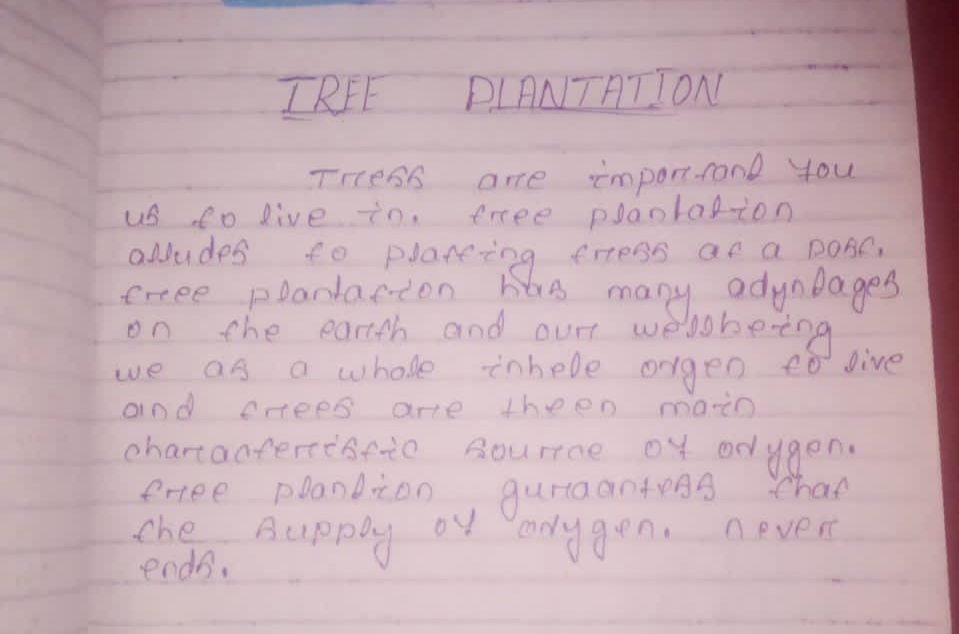 TREE PLANTATION
Tress are important for
us to live in. tree plantation
alludes to platting tress at a
tree plantation has many advntages
on the earth and our wellbeing
we as a whole inhele oxgen to live
and trees are then main
charactertistic source of oxygen.
tree plantion guraantess that
the supply of oxygen. never
ends.